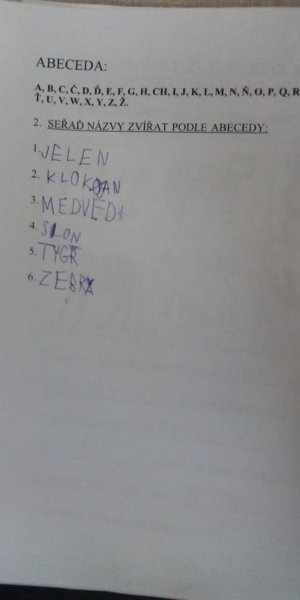 ABECEDA:
A, B, C, Č, D, Ď, E, F, G, H, CH, I, J, K, L, M, N, Ň, O, P, Q, R
Ť, U, V, W, X, Y, Z, Ž.
2. SEŘAĎ NÁZVY ZVÍŘAT PODLE ABECEDY:
1. JELEN
2. KLOKAN
3. MEDVĚD
4. SLON
5. TYGR
6. ZEBRA